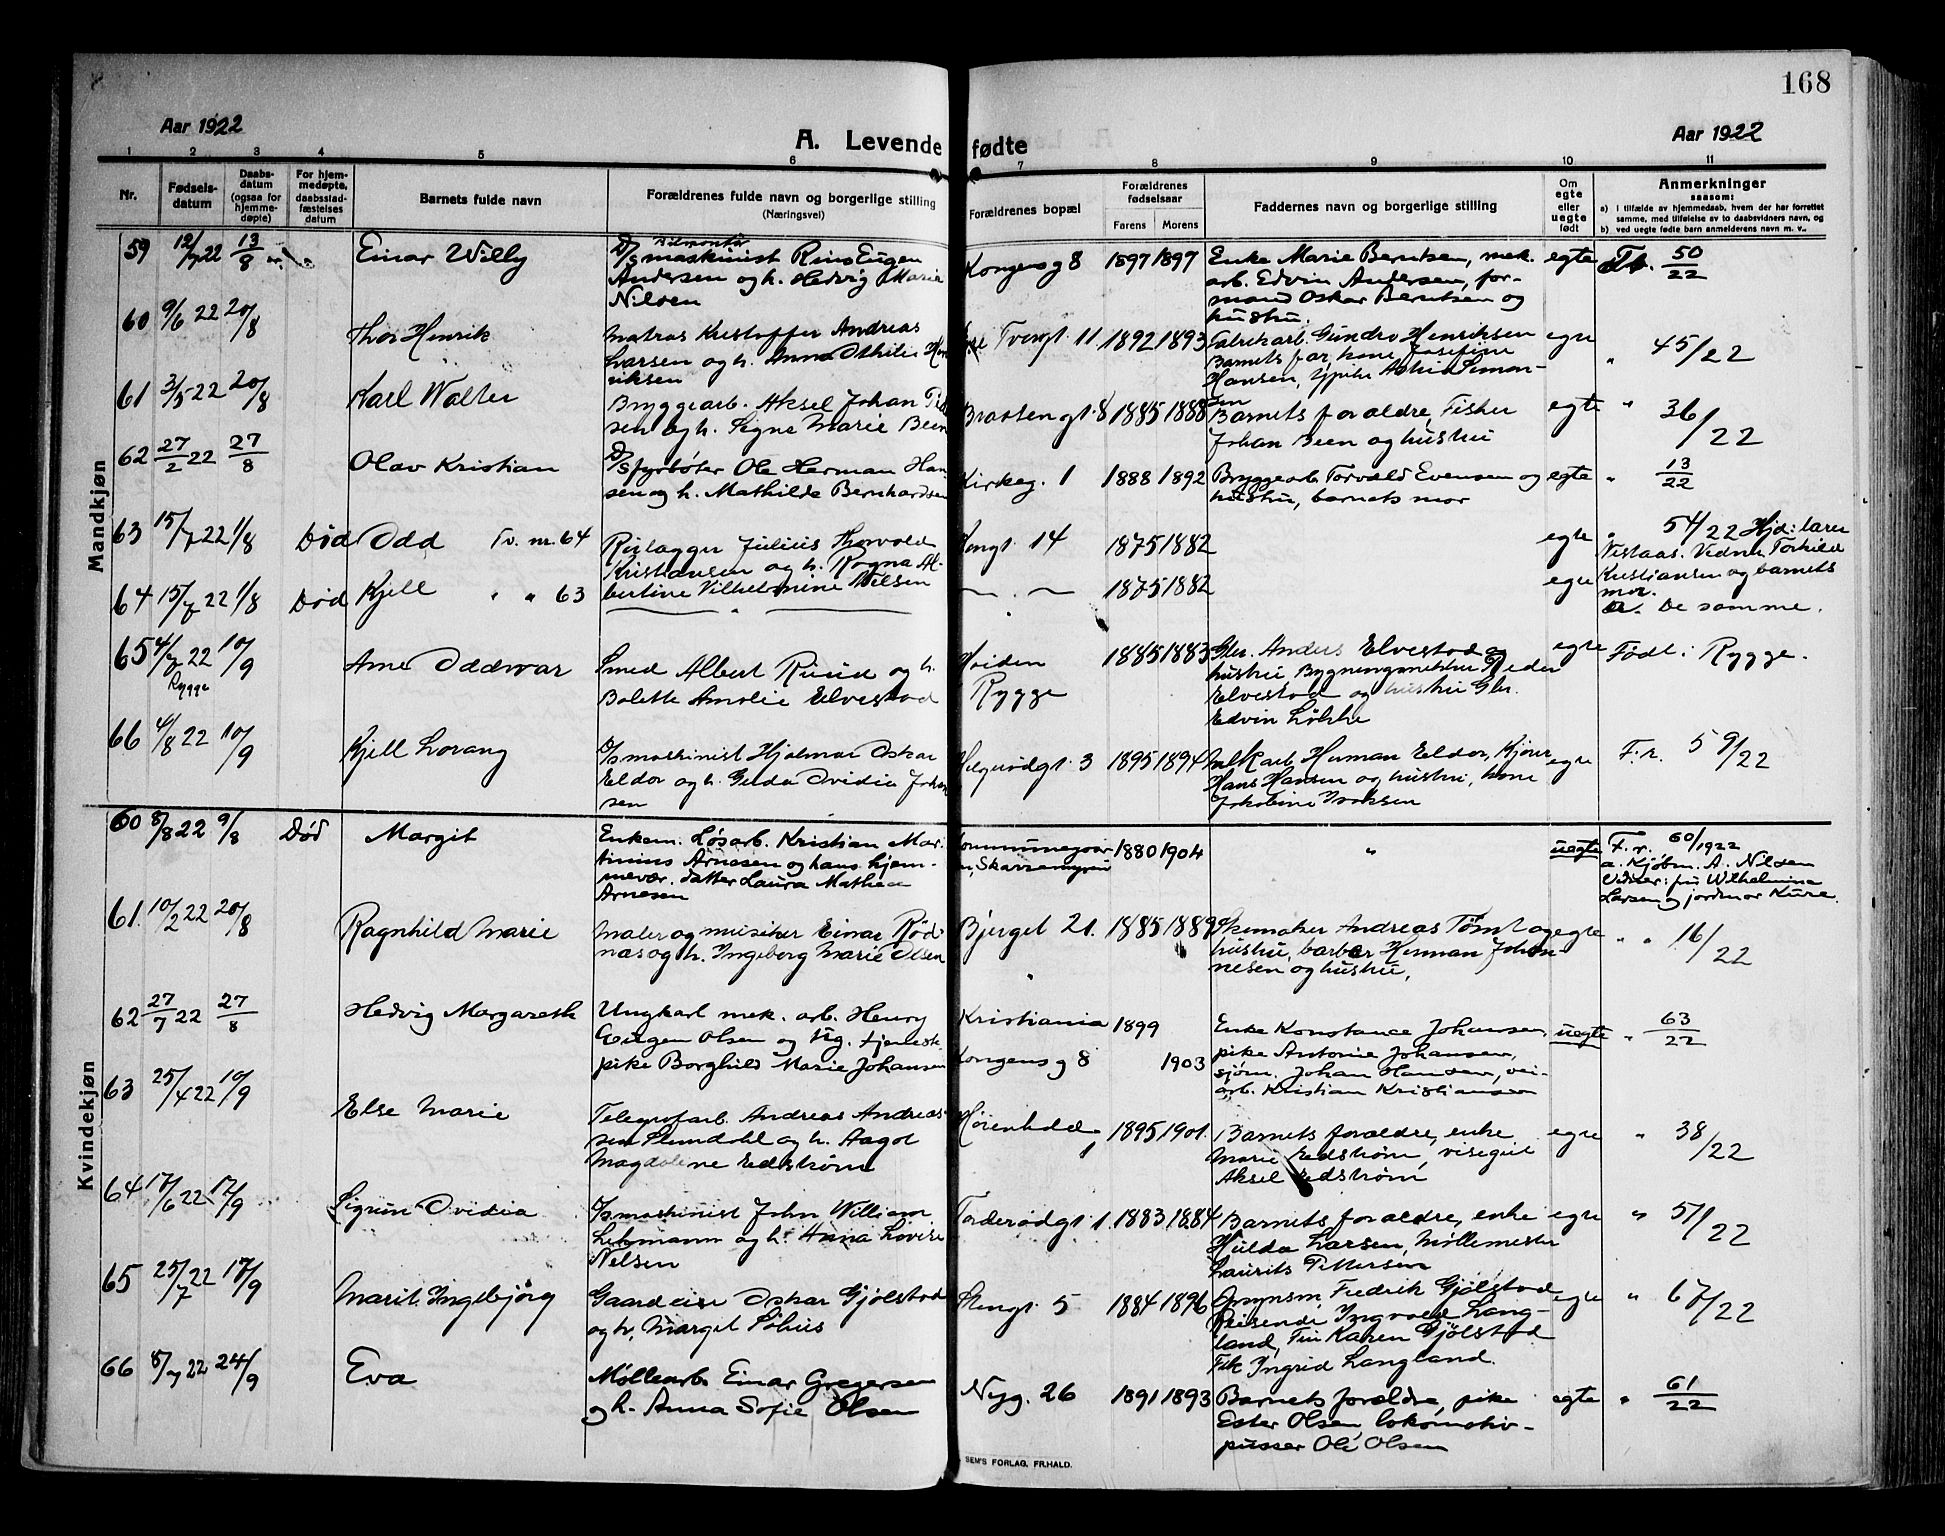 168
Aar 1922
A. Levende fødte
Aar 1922
1 2 3 4 5 6 7 8 9 10 11
Nr.
Fødsels-
datum
Daabs-
datum
(ogsaa for
hjemme-
døpte)
For hjem-
medøpte,
daabsstad-
fæstelses
datum
Barnets fulde navn
Forældrenes fulde navn og borgerlige stilling
(Næringsvei)
Forældrenes bopæl
Forældrenes
fødselsaar
Farens Morens
Faddernes navn og borgerlige stilling
Om
egte
eller
uegte
født
Anmerkninger
saasom:
a) i tilfælde av hjemmedaab, hvem der har forrettet
samme, med tilføielse av to daabsvidners navn, og
b) ved uegte fødte barn anmelderens navn m. v..
Mandkjøn
59 12/7 22 13/8 Einar Willy
D/S maskinist Eugen
Andersen og h. Hedvig Marie
Nilsen
Kongensg 8 1897 1897
Enke Marie Berntsen, mek.
arb. Edvin Andersen, for-
mand Oskar Berntsen og
hustru.
egte 50/22
60 9/6 22 20/8 Thor Henrik
Matros Kristoffer Andreas
Larsen og h. Anna Othilie Hen
riksen
Tvergt. 11 1892 1893
Fabrikarb. Gundro Henriksen
Barnets far, kone Josefine
Hansen, pike Astrid Simon-
sen
egte " 45/22
61 3/5 22 20/8 Karl Walter
Bryggearb. Aksel Johan
sen og h. Signe Marie Been
Braatengt. 8 1885 1888
Barnets forældre, Fisker
Johan Been og hustru
egte " 36/22
62 27/2 22 27/8 Olav Kristian
D/S fyrbøter Ole Herman Han
sen og h. Mathilde Bernhardsen
Kirkeg. 1 1888 1892
Bryggearb. Torvald Evensen og
hustru, barnets mor
egte " 13/22
63 15/7 22 1/8 Død Odd Tv. nr. 64
Rørlægger Julius Thorvald
Kristiansen og h. Ragna Al-
bertine Vilhelmine Nilsen
14 1875 1882
egte " 54/22 Hjd: lærer
Vestaas. Vidner Torkild
Kristiansen og barnets
mor.
64 15/7 22 1/8 Død Kjell " " 63
" 1875 1882
egte De samme.
65 4/7 22 10/9 Arne Oddvar
Rygge
Smed Albert Ruud og h.
Bolette Amalie Elvestad
Høiden
Rygge
1885 1883
Gbr. Anders Elvestad og
hustru Bygningssnekker Peder
Elvestad og hustru Gbr.
Edvin Løkke
egte Født i Rygge.
66 4/8 22 10/9 Kjell Lorang
D/S maskinist Hjalmar Oskar
Eldor og h. Gerda Ovidia Johan
sen
Helgerødgt. 3 1895 1894
Herman Eldor, Kjører
Hans Hansen og hustru, kone
Jakobine Isaksen
egte F. r. 59/22
Kvindekjøn
60 8/8 22 9/8 Død Margit
Enkem. Løsarb. Kristian Mar
tinius Arnesen og hans hjem-
mevær. datter Laura Mathea
Arnesen
Kommunegaar
n, Skarremyren
1880 1904
"
uegte F. r. 60/1922
a. Kjøbm. A. Nilsen
Vidner: fru Wilhelmina
Larsen og jordmor Kure.
61. 10/2 22 20/8 Ragnhild Marie
Maler og musiker Einar Rød-
næs og h. Ingeborg Marie Olsen
Bjerget 21. 1885 1889
Skomaker Andreas Tømt og
hustru, barber Herman Johan-
nesen og hustru,
egte " " 16/22
62 27/7 22 27/8 Hedvig Margareth
Ungkarl mek. arb. Henry
Eugen Olsen og Ug. tjeneste
pike Borghild Marie Johansen
Kristiania 1899
Kongens g 8 1903
Enke Konstance Johansen,
pike Antonie Johansen,
sjøm. Johan Hansen, vei-
arb. Kristian Kristiansen
uegte " 63/22
63 25/4 22 10/9 Else Marie
Telegrafarb. Andreas Andreas-
sen Lundahl og h. Aagot
Magdalene Eidstrøm
1895 1901.
Barnets forældre, enke
Marie Eidstrøm, visegut
Aksel Eidstrøm
egte " 38/22
64 17/6 22 17/9 Sigrun Ovidia
D/S maskinist John William
Lehmann og h. Anna Lovise
Nilsen
Torderødgt. 1. 1883 1884
Barnets forældre, enke
Hulda Larsen, Møllemester
Laurits Pettersen
egte " 51/22
65 25/7 22 17/9 Marit Ingebjørg
Gaardeier Oskar Gjølstad
og h. Margit Søhus
5 1884 1896
Opsynsm. Fredrik Gjølstad
Reisende Ingvald Lang-
land, Fru Karen Gjølstad
Frk Ingrid Langland.
egte " 67/22
66 8/7 22 24/9 Eva
Møllearb. Einar Gregersen
og h. Anna Sofie Olsen
Nyg. 26 1891 1893
Barnets forældre, pike
Ester Olsen, lokomotiv-
pusser Ole Olsen
egte " 61/22
SEM'S FORLAG, FR.HALD.